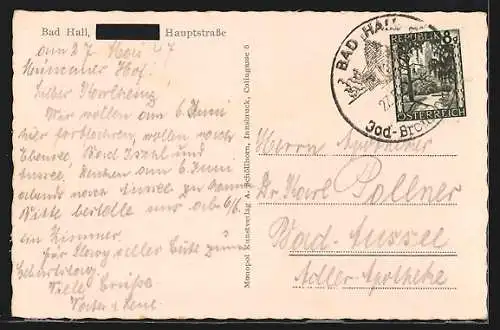 Bad Hall, Hauptstraße
am 27. Mai 47
Münchner Hof.
Lieber Karlheinz
Wir wollen am 6. Juni
hier fortfahren, wollen nach
Ebensee, Bad Ischl und
Aussee, am 6. Juni
abends nach Aussee zu
Bitte bestelle uns ab 6/6.
ein Zimmer.
Für alles Gute zum
Geburtstag.
Viele Grüße
Vater
Monopol Kunstverlag A. Schöllhorn, Innsbruck, Colingasse 6
BAD HALL
27.
Jod-Bro
REPUBLIK
8g
ÖSTERREICH
Herrn Apotheker
Dr Karl Pollner
Bad-Aussee
Adler-Apotheke